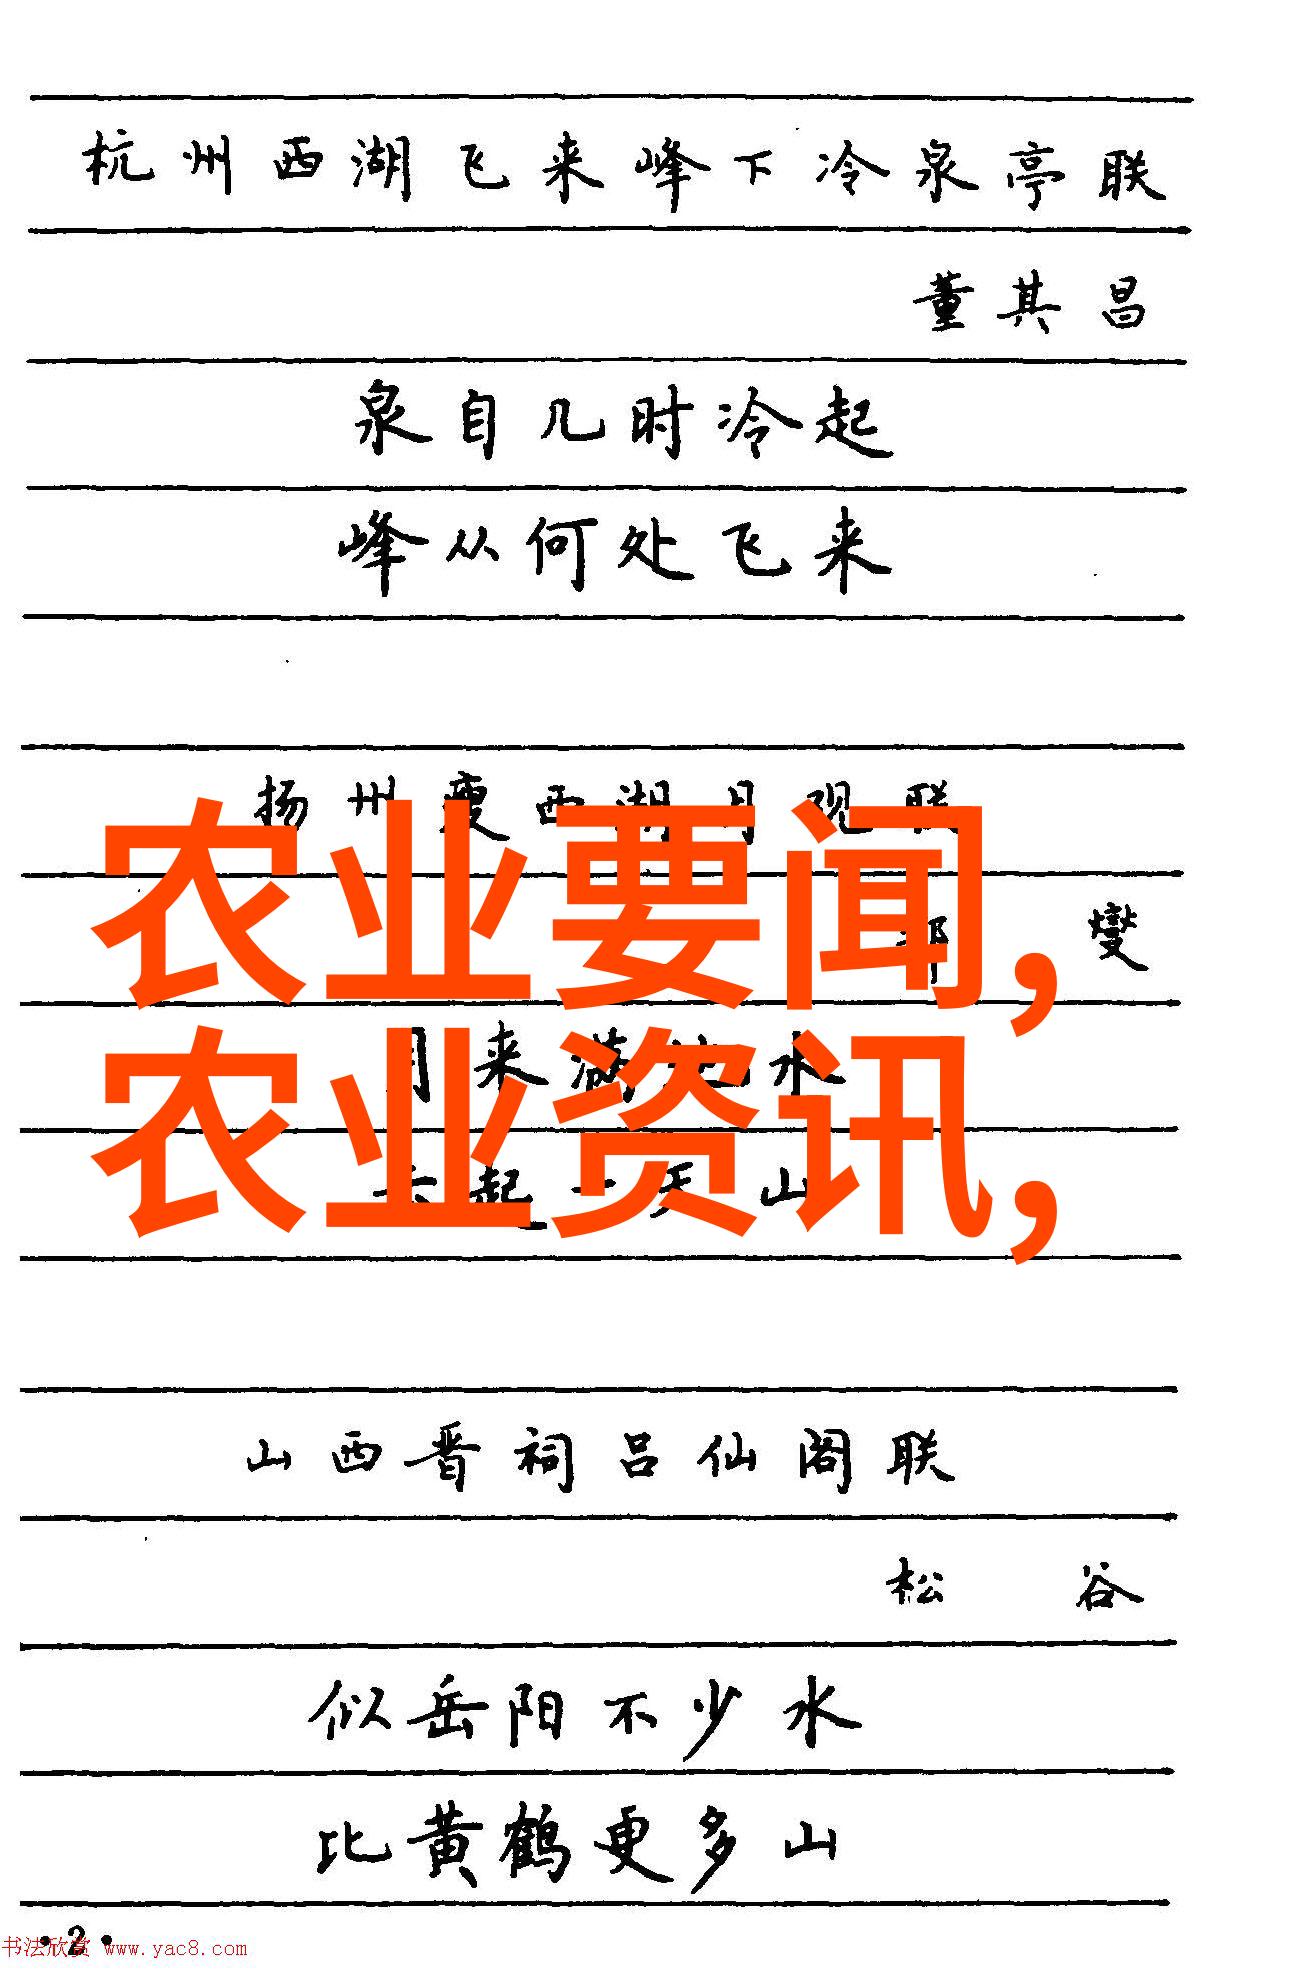 杭州西湖飞来峰下冷泉亭联
董其昌
泉自几时冷起
峰从何处飞来
扬州瘦西湖月观联
农业要闻,
郑燮
月来满地水
农业资讯,
云起一天山
山西晋祠吕仙阁联
松谷
似岳阳不少水
比黄鹤更多山
·2·
书法欣赏 www.yac8.com